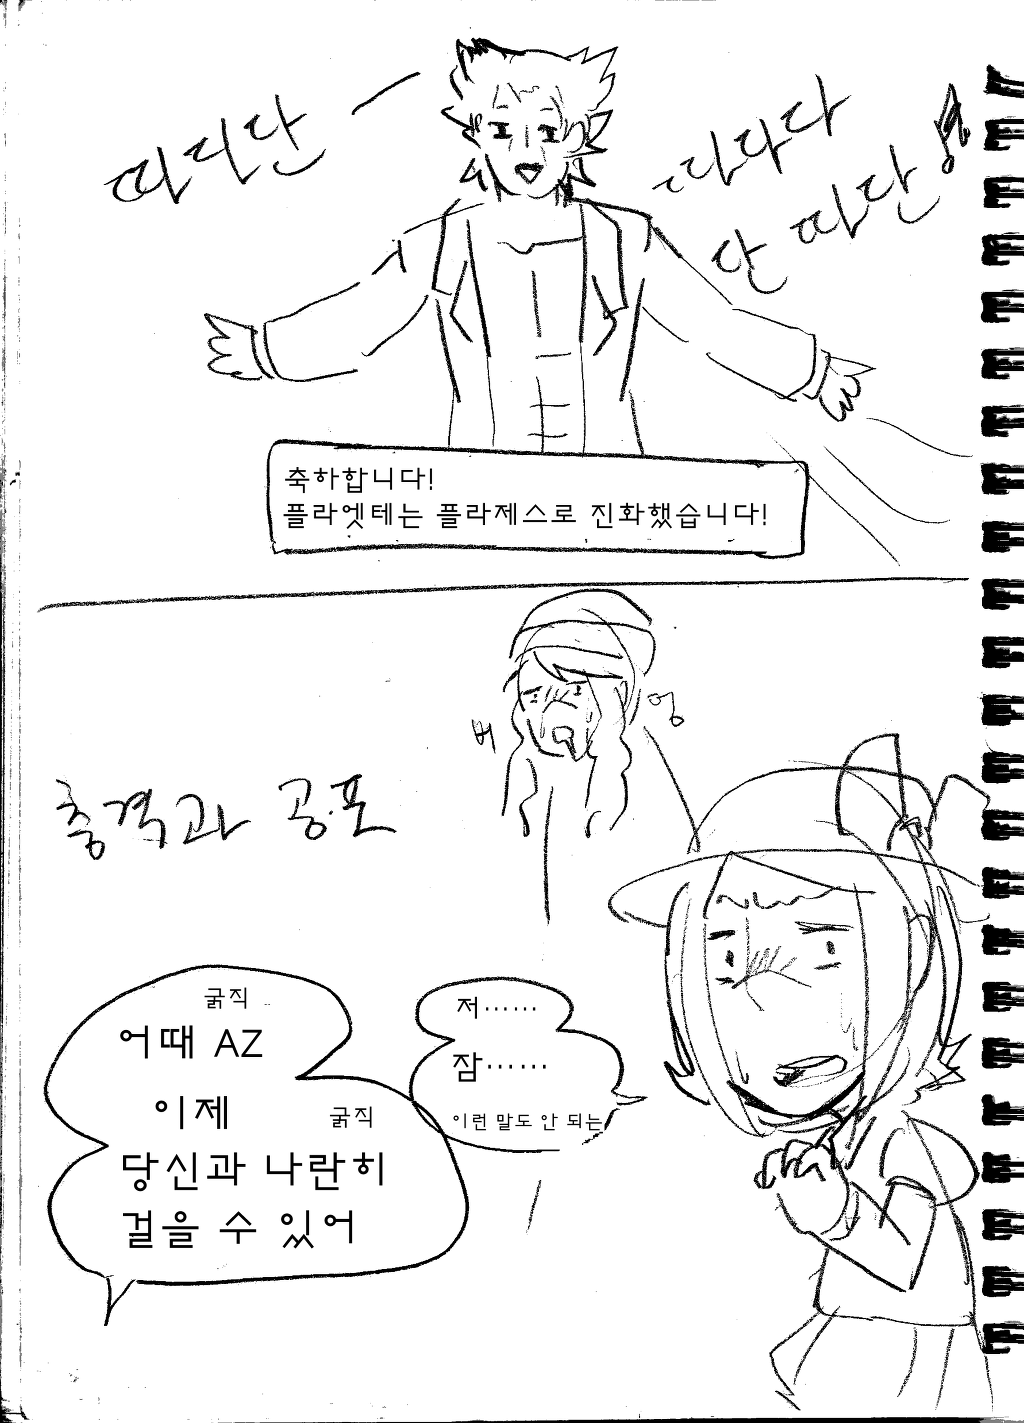 따디단ー
따다다
단 따단♬
축하합니다!
플라엣테는 플라제스로 진화했습니다!
버
엉
충격과 공포
굵직
어때 AZ
이제
굵직
당신과 나란히
걸을 수 있어
저……
잠……
이런 말도 안 되는